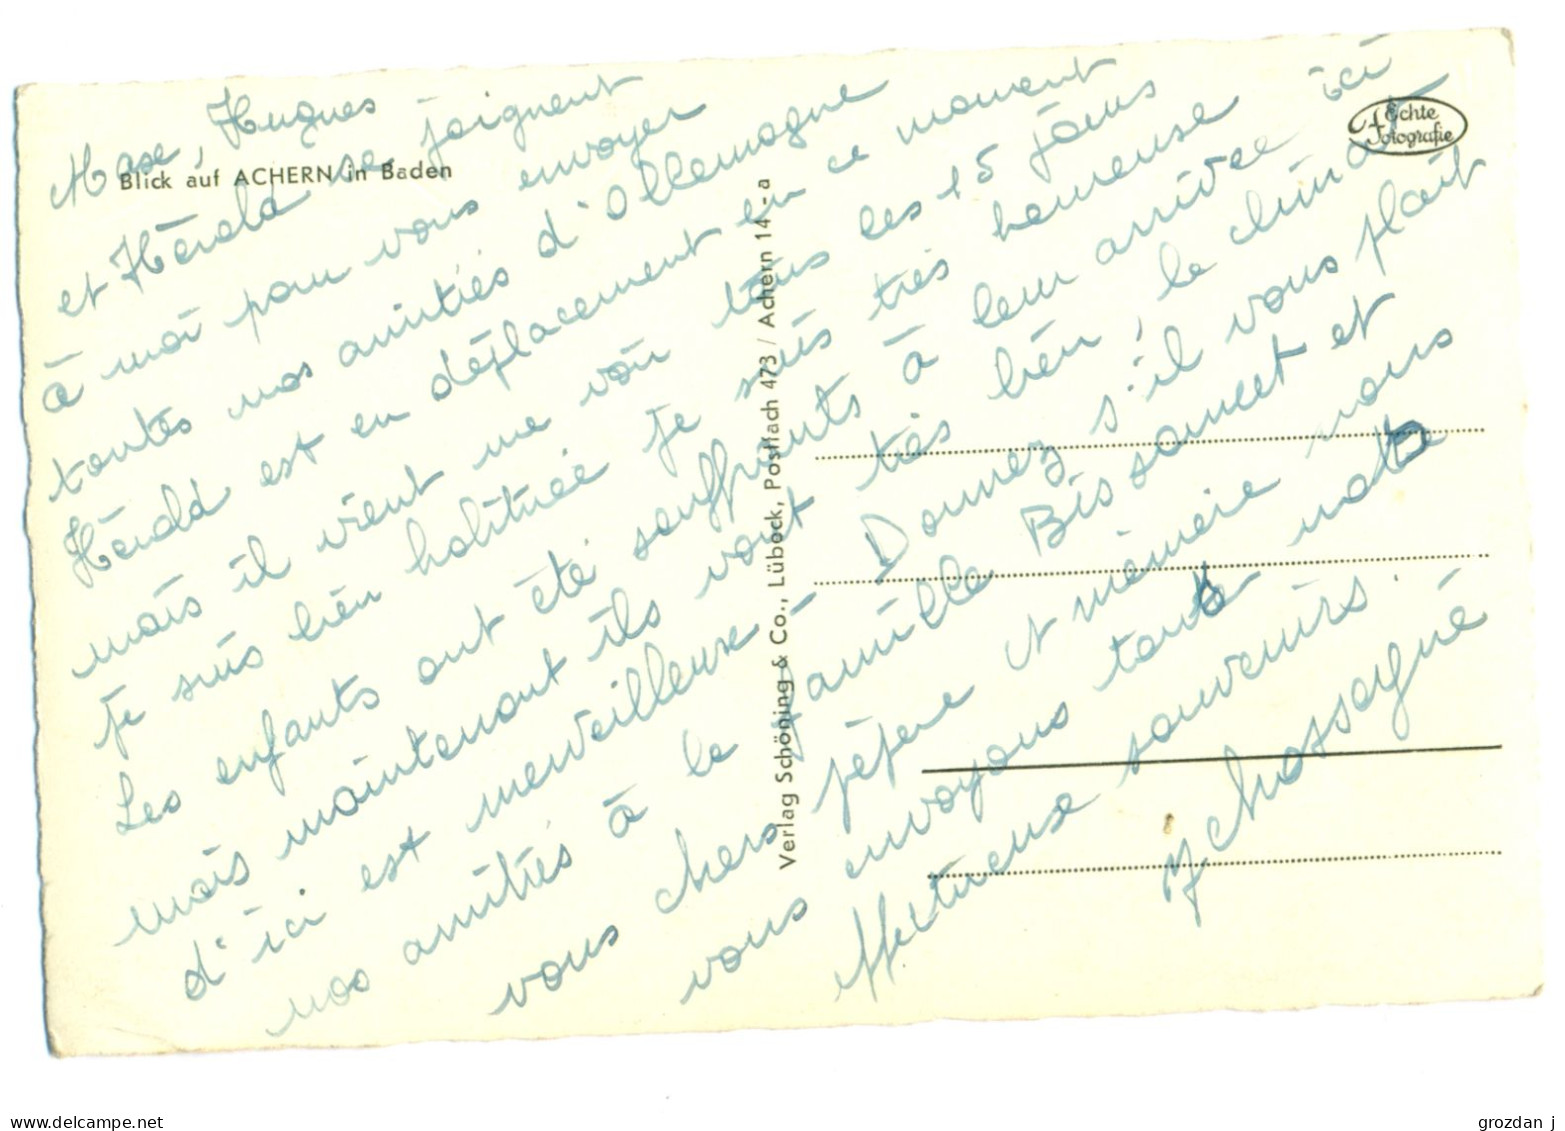 Max, Hugues
et Hérald se joignent
à moi pour vous envoyer
toutes nos amitiés d'Allemagne
Hérald est en déplacement en ce moment
mais il vient me voir tous les 15 jours
je suis bien habituée je suis très heureuse ici
Les enfants ont été souffrants à leur arrivée
mais maintenant ils vont très bien, le climat
d'ici est merveilleux - Donnez s'il vous plait
nos amitiés à la famille Bissonnet et
vous chers pépère et mémère nous
vous envoyons tous notre
affectueux souvenirs.
y Chassagné
Blick auf ACHERN in Baden
Verlag Schöning & Co., Lübeck, Postfach 473 / Achern 14 - a
Echte
Fotografie
www.delcampe.net
grozdan j